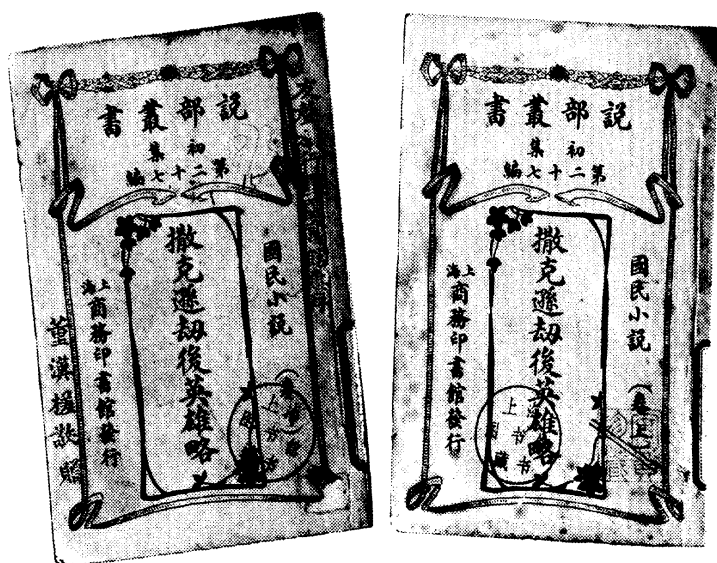 説部叢書
初集
第二十七編
國民小説
撒克遜劫後英雄略
上海商務印書館發行
説部叢書
初集
第二十七編
國民小説 (卷上)
撒克遜劫後英雄略
上海商務印書館發行